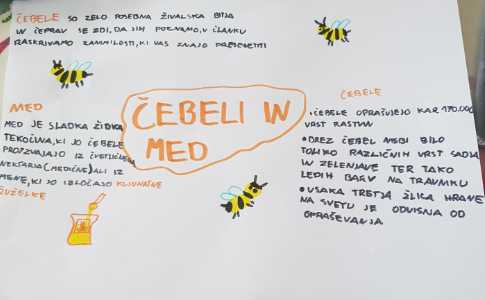 ČEBELE SO ZELO POSEBNA ŽIVALSKA BITJA
IN ČEPRAV SE ZDI, DA JIH POZNAMO, V ČLANKU
RASKRIVAMO ZANIMLJIVOSTI, KI VAS ZNAJO PRESENETITI
MED
MED JE SLADKA ŽIDKA
TEKOČINA, KI JO ČEBELE
PROIZVAJAJO IZ CVETLIČNEGA
NEKTARJA (MEDIČINE) ALI IZ
MENE, KI JO IZLOČAJO
ŽUŽELKE
ČEBELI IN
MED
ČEBELE
• ČEBELE OPRAŠUJEJO KAR 170.000
VRST RASTLIN
• BREZ ČEBEL NEBI BILO
TOLIKO RAZLIČNIH VRST SADJA
IN ZELENJAVE TER TAKO
LEPIH BARV NA TRAVNIKU
• VSAKA TRETJA ŽLICA HRANE
NA SVETU JE ODVISNA OD
OPRAŠEVANJA